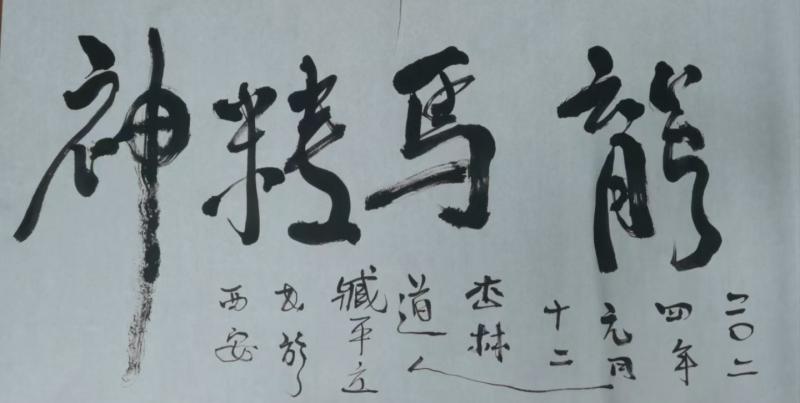 龍馬精神
二〇二
四年
元月
十二
杏林
道人
臧平立
书於
西安